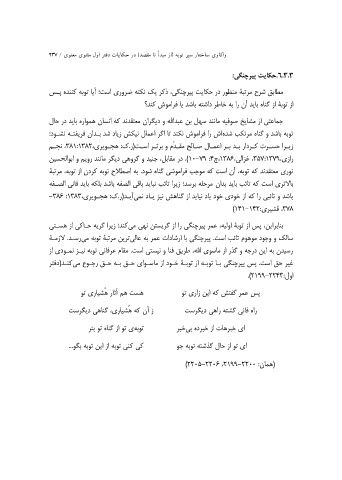 واکاوی ساختار سیر توبه (از مبدأ تا مقصد) در حکایات دفتر اول مثنوی معنوی / ۹۳۷
۶.۳.۳. حکایت پیرچنگی:
مطابق شرح مرتبۀ منظور در حکایت پیرچنگی، ذکر یک نکته ضروری است؛ آیا توبه کننده پس
از توبۀ از گناه باید آن را به خاطر داشته باشد یا فراموش کند؟
جماعتی از مشایخ صوفیه مانند سهل بن عبدالله و دیگران معتقدند که انسان همواره باید در حال
توبه باشد و گناه مرتکب شده‌اش را فراموش نکند تا اگر اعمال نیکش زیاد شد بدان فریفته نشود؛
زیرا حسرت کردار بد بر اعمال صالح مقدّم و برتر است(ر.ک: هجویری،۱۳۸۳: ۳۸۱، نجم
رازی،۱۳۷۹: ۳۵۷، غزالی،۱۳۸۶،ج۴: ۷۹-۱۰). در مقابل، جنید و گروهی دیگر مانند رویم و ابوالحسین
نوری معتقدند که توبه، آن است که موجب فراموشی گناه شود. به اصطلاح توبه کردن از توبه، مرتبۀ
بالاتری است که تائب باید بدان مرحله برسد؛ زیرا تائب نباید باقی الصفه باشد بلکه باید فانی الصفه
باشد و تائبی را که از خودی خود یاد نیاید از گناهش نیز یاد نمی‌آید(ر.ک: هجویری،۱۳۸۳: ۳۸۶-
۳۷۸، قشیری: ۱۴۲-۱۴۱)
بنابراین، پس از توبۀ اولیه، عمر پیرچنگی را از گریستن نهی می‌کند؛ زیرا گریه حاکی از هستی
سالک و وجود موهوم تائب است. پیرچنگی با ارشادات عمر به عالی‌ترین مرتبۀ توبه می‌رسد. لازمۀ
رسیدن به این درجه و گذر از ماسوی الله، طریق فنا و نیستی است. مقام عرفانی توبه نیز نمودی از
غیر حق است. پس پیرچنگی با توبه از توبۀ خود از ماسوای حق به حق رجوع می‌کند(دفتر
اول: ۲۲۴۳-۲۱۹۹).
پس عمر گفتش که این زاری تو هست هم آثار هُشیاری تو
راه فانی گشته راهی دیگرست ز آن که هُشیاری، گناهی دیگرست
ای خبرهات از خبرده بی‌خبر توبه‌ی تو از گناه تو بتر
ای تو از حال گذشته توبه جو کی کنی توبه از این توبه بگو...
(همان: ۲۲۰۰-۲۱۹۹، ۲۲۰۶-۲۲۰۵)